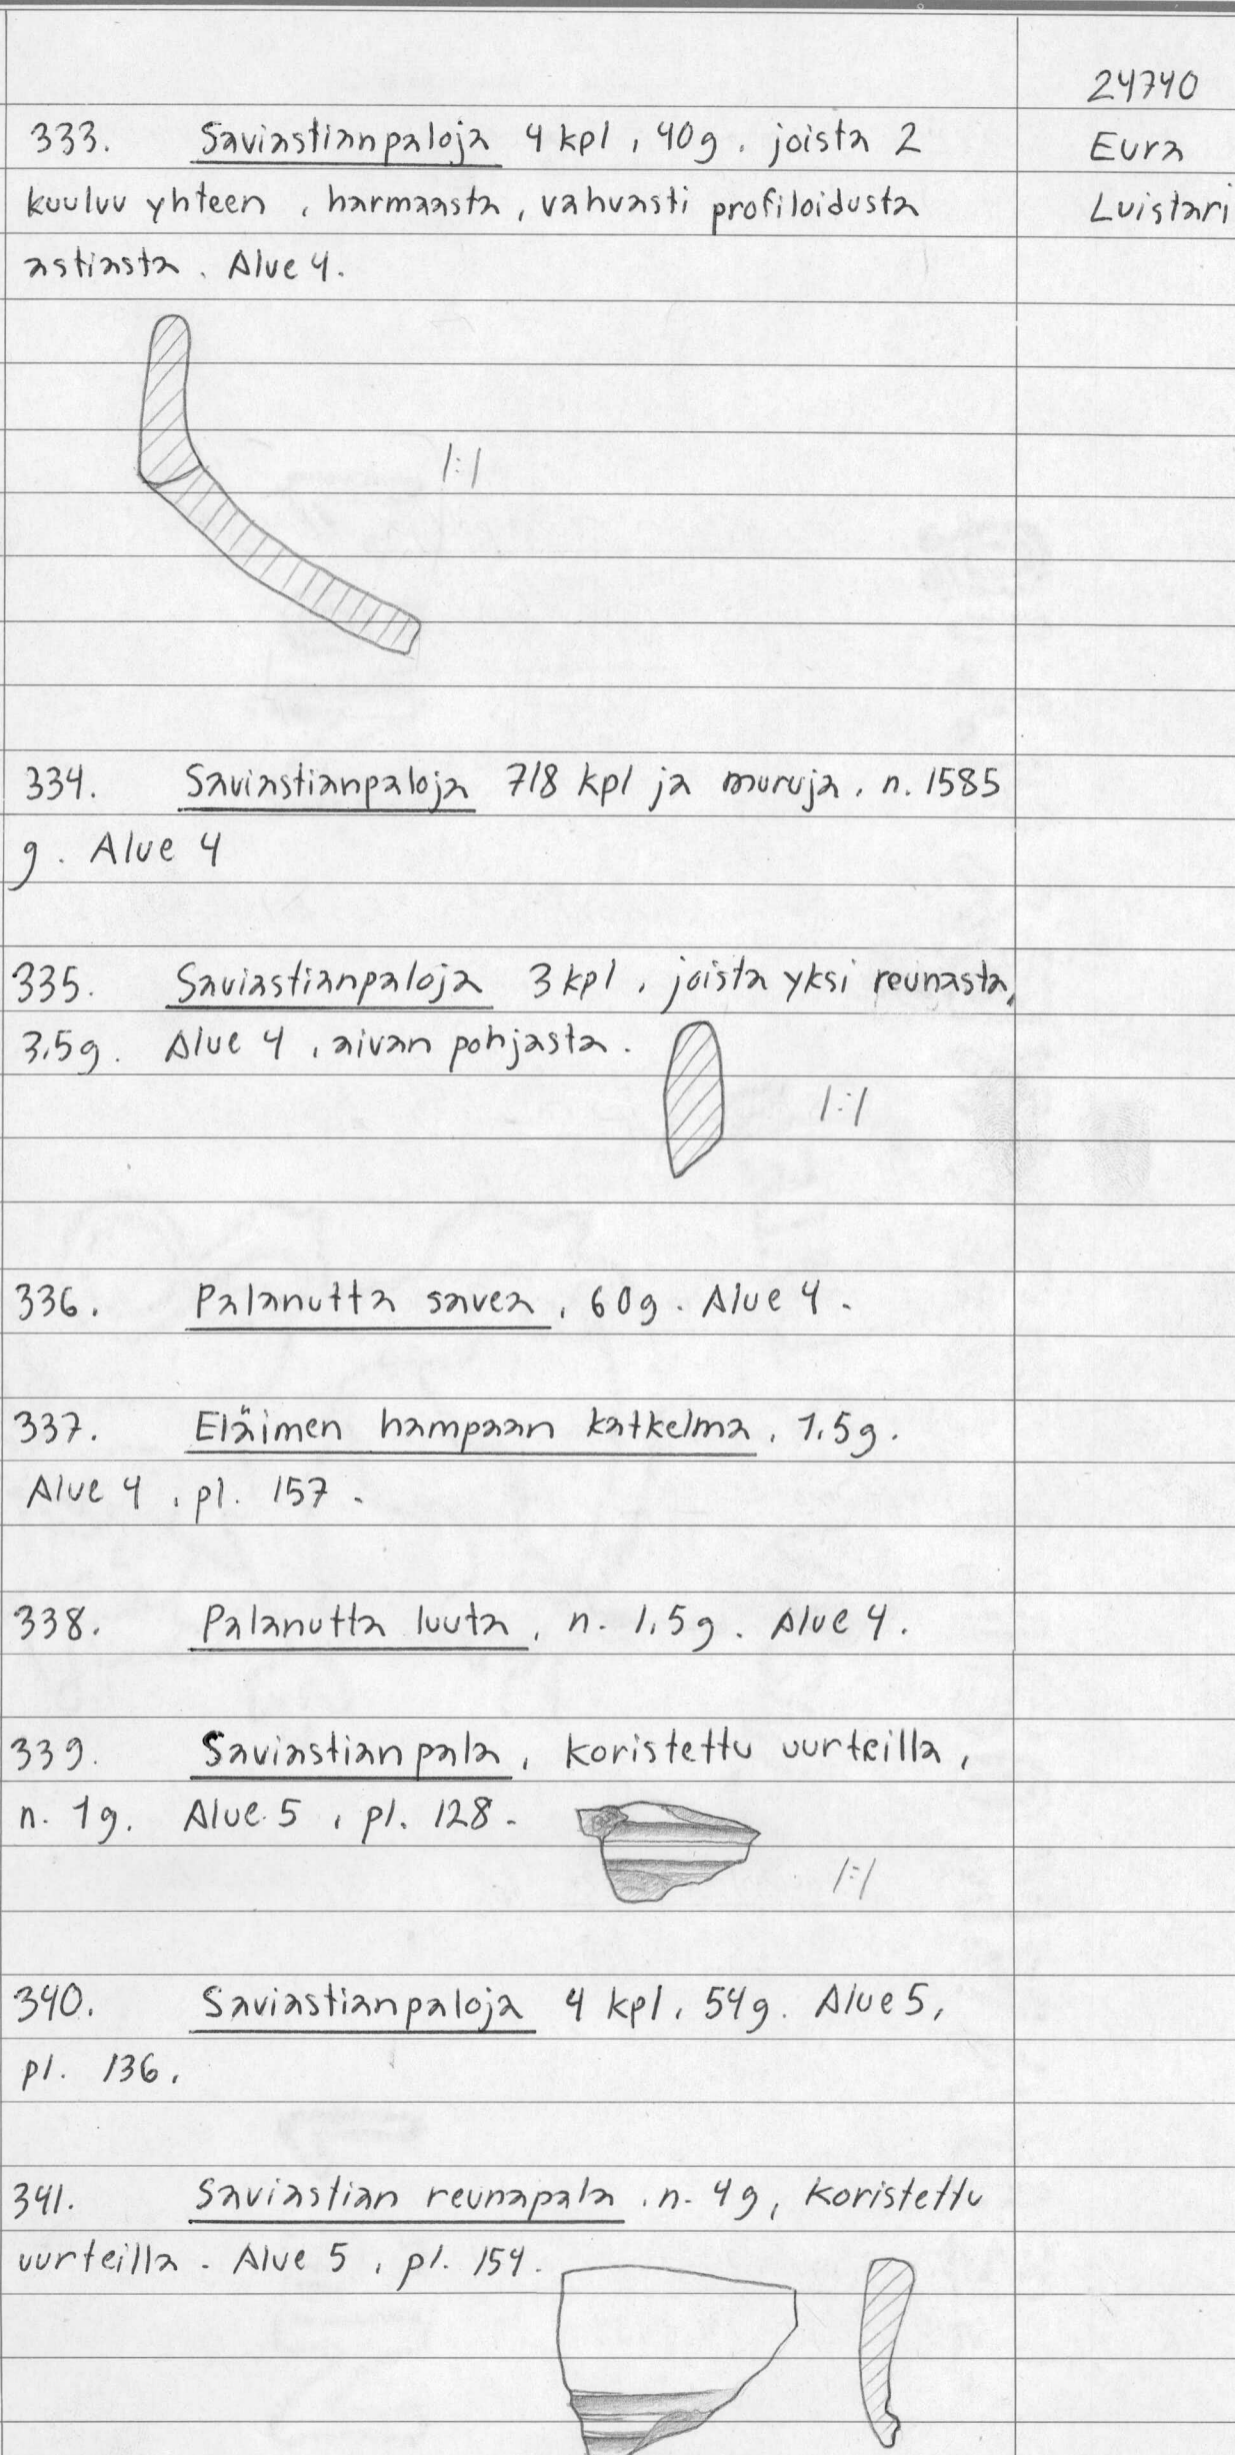 24740
Eura
Luistari
333. Saviastianpaloja 4 kpl, 40g. joista 2
kuuluu yhteen, harmaasta, vahvasti profiloidusta
astiasta. Alue 4.
1:1
334. Saviastianpaloja 718 kpl ja muruja, n. 1585
g. Alue 4
335. Saviastianpaloja 3 kpl, joista yksi reunasta,
3,5g. Alue 4, aivan pohjasta.
1:1
336. Palanutta savea, 60g. Alue 4.
337. Eläimen hampaan katkelma, 1,5g.
Alue 4, pl. 157.
338. Palanutta luuta, n. 1,5g. Alue 4.
339. Saviastian pala, koristettu uurteilla,
n. 1g. Alue 5, pl. 128.
1:1
340. Saviastianpaloja 4 kpl, 54g. Alue 5,
pl. 136.
341. Saviastian reunapala, n. 4g, koristettu
uurteilla. Alue 5, pl. 154.